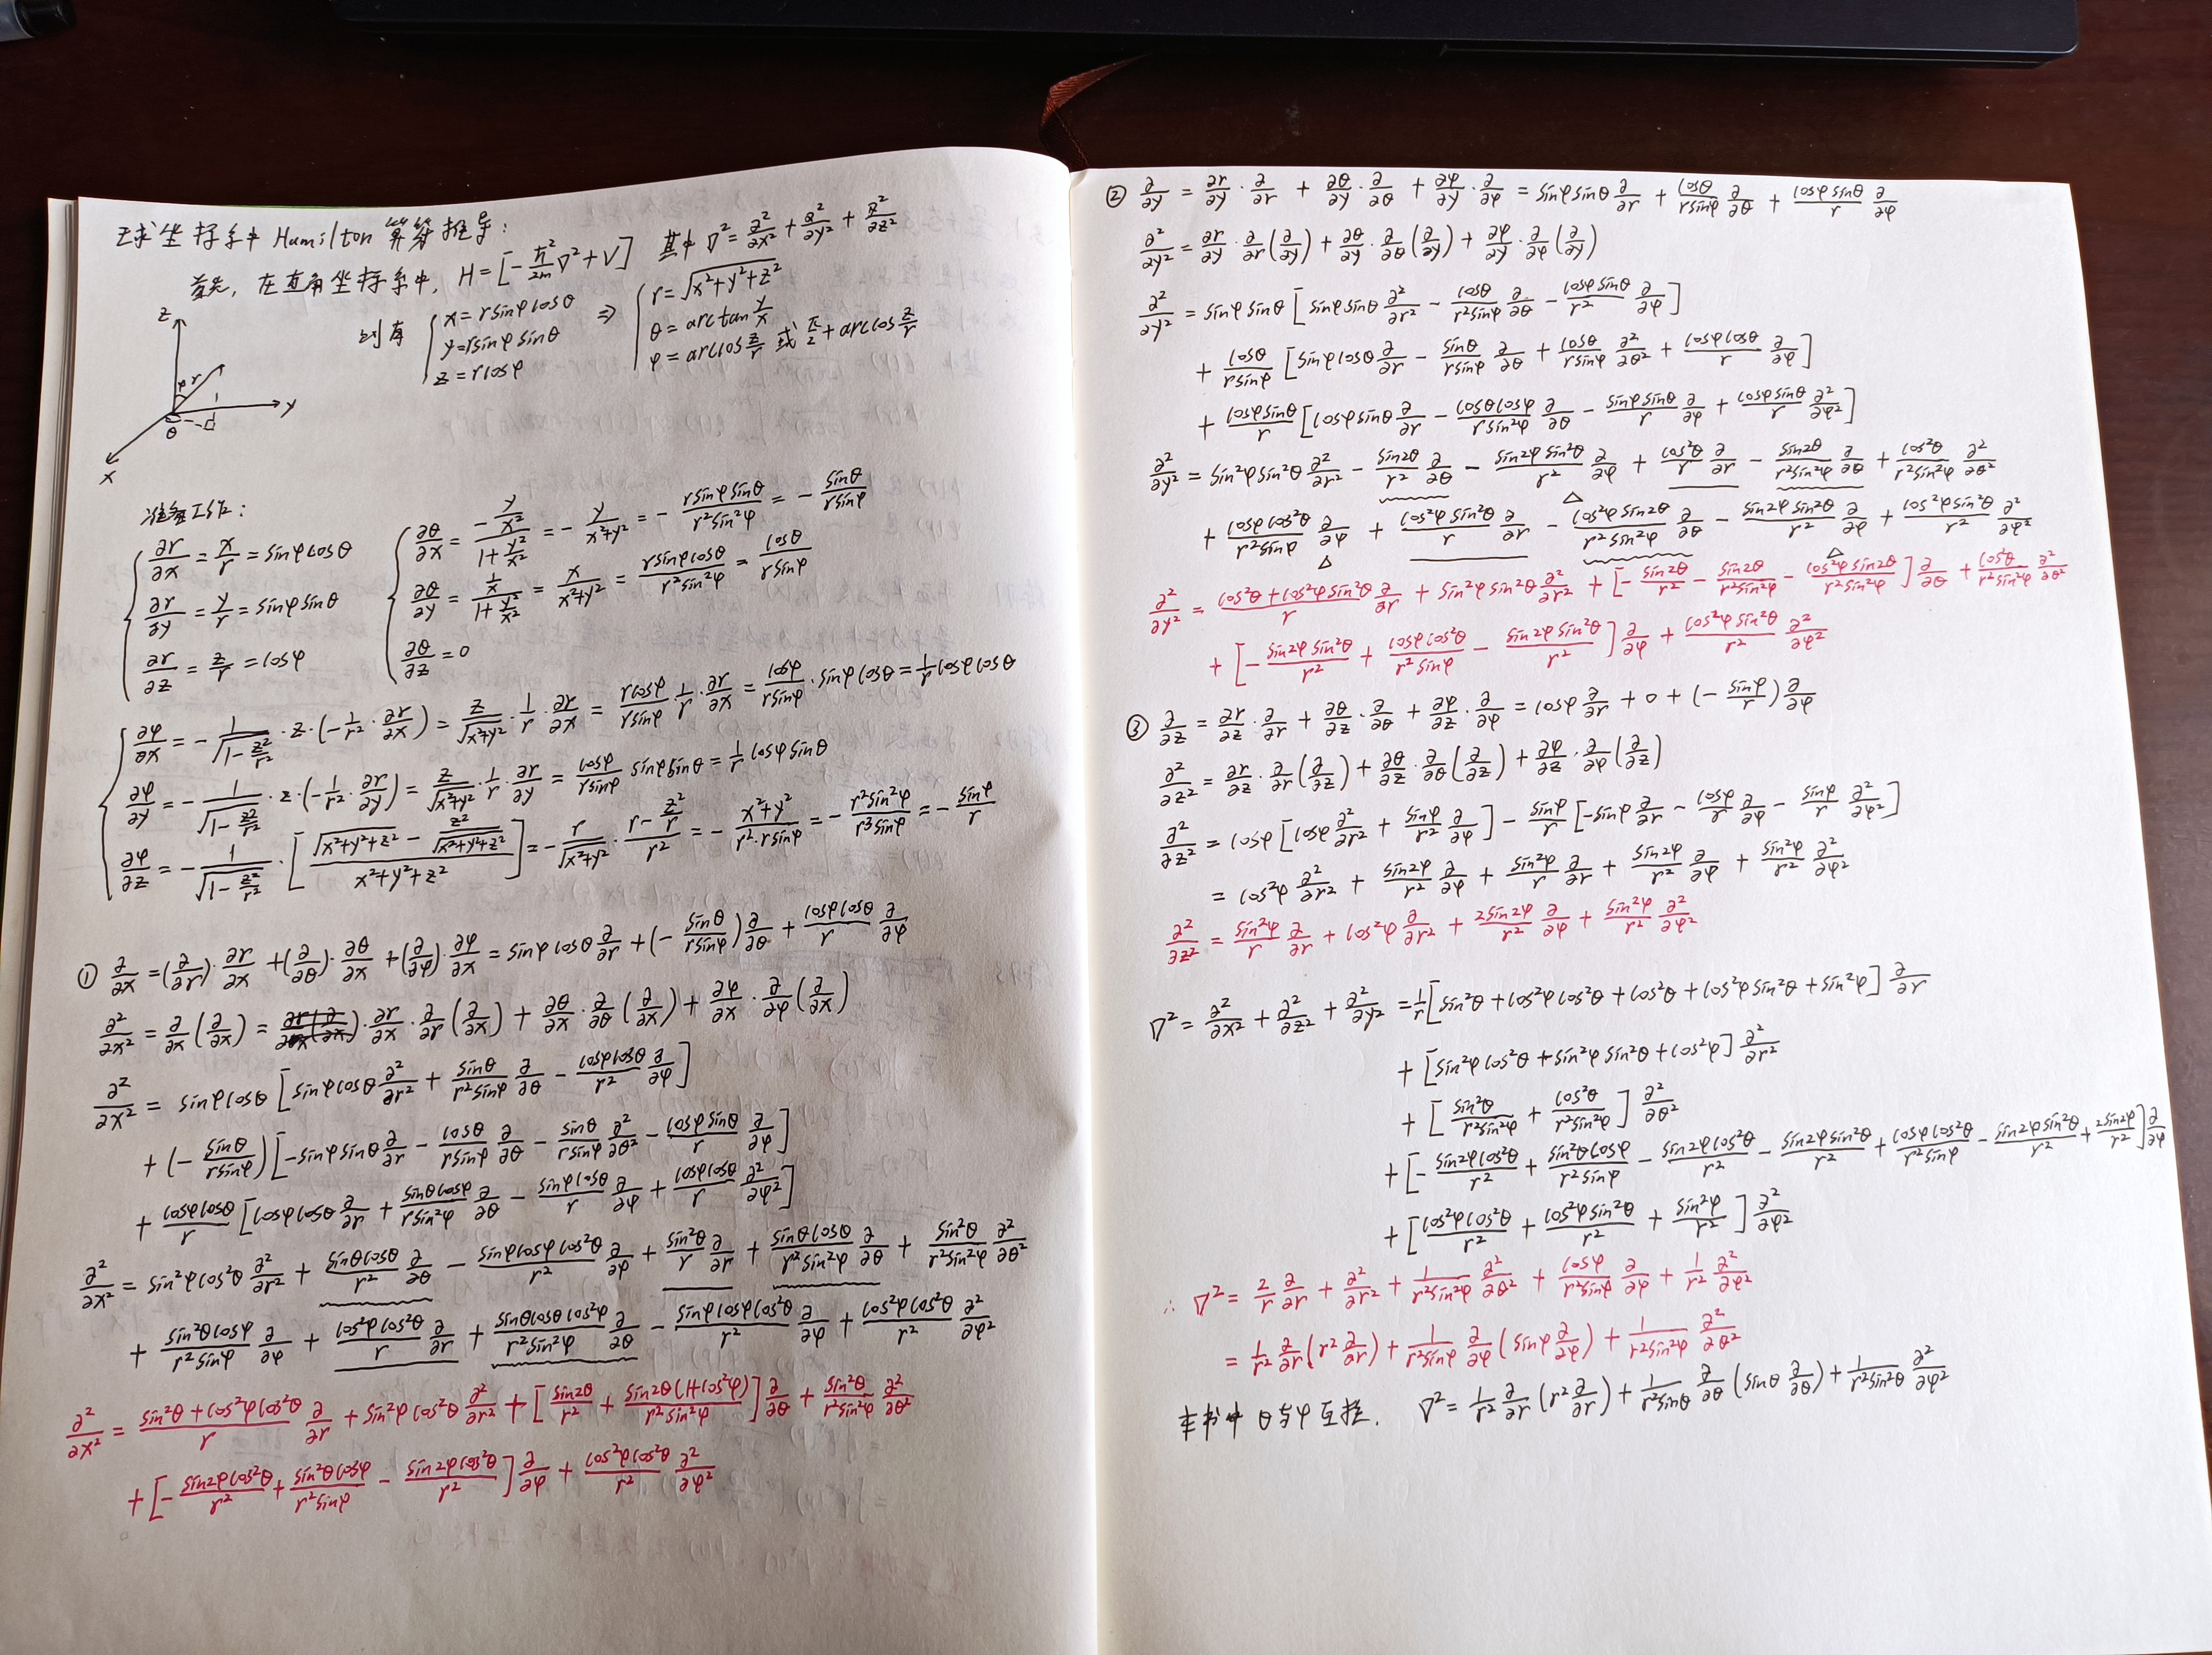 球坐标系中Hamilton算符推导:
首先, 在直角坐标系中, H=[-ℏ²/2m ∇²+V] 其中 ∇²=∂²/∂x²+∂²/∂y²+∂²/∂z²
则有 { x=rsinφcosθ y=rsinφsinθ z=rcosφ ⇒ { r=√(x²+y²+z²) θ=arctan y/x φ=arccos z/r 或 π/2+arccos z/r
z
φ r
y
θ
x
准备工作:
{ ∂r/∂x = x/r = sinφcosθ
∂r/∂y = y/r = sinφsinθ
∂r/∂z = z/r = cosφ
{ ∂θ/∂x = (-y/x²)/(1+y²/x²) = -y/(x²+y²) = -rsinφsinθ/(r²sin²φ) = -sinθ/(rsinφ)
∂θ/∂y = (1/x)/(1+y²/x²) = x/(x²+y²) = rsinφcosθ/(r²sin²φ) = cosθ/(rsinφ)
∂θ/∂z = 0
{ ∂φ/∂x = -1/√(1-z²/r²) · z·(-1/r²·∂r/∂x) = z/√(x²+y²) · 1/r · ∂r/∂x = rcosφ/(rsinφ) 1/r · ∂r/∂x = cosφ/(rsinφ) · sinφcosθ = 1/r cosφcosθ
∂φ/∂y = -1/√(1-z²/r²) · z·(-1/r²·∂r/∂y) = z/√(x²+y²) · 1/r · ∂r/∂y = cosφ/(rsinφ) sinφsinθ = 1/r cosφsinθ
∂φ/∂z = -1/√(1-z²/r²) · [(√(x²+y²+z²) - z²/√(x²+y²+z²))/(x²+y²+z²)] = -r/√(x²+y²) · (r-z²/r)/r² = -(x²+y²)/(r²·rsinφ) = -r²sin²φ/(r³sinφ) = -sinφ/r
① ∂/∂x = (∂/∂r)·∂r/∂x + (∂/∂θ)·∂θ/∂x + (∂/∂φ)·∂φ/∂x = sinφcosθ ∂/∂r + (-sinθ/(rsinφ)) ∂/∂θ + cosφcosθ/r ∂/∂φ
∂²/∂x² = ∂/∂x(∂/∂x) = ∂r/∂x · ∂/∂r(∂/∂x) + ∂θ/∂x · ∂/∂θ(∂/∂x) + ∂φ/∂x · ∂/∂φ(∂/∂x)
∂²/∂x² = sinφcosθ[sinφcosθ ∂²/∂r² + sinθ/(r²sinφ) ∂/∂θ - cosφcosθ/r² ∂/∂φ]
+ (-sinθ/(rsinφ))[-sinφsinθ ∂/∂r - cosθ/(rsinφ) ∂/∂θ - sinθ/(rsinφ) ∂²/∂θ² - cosφsinθ/r ∂/∂φ]
+ cosφcosθ/r [cosφcosθ ∂/∂r + sinθcosφ/(rsin²φ) ∂/∂θ - sinφcosθ/r ∂/∂φ + cosφcosθ/r ∂²/∂φ²]
∂²/∂x² = sin²φcos²θ ∂²/∂r² + sinθcosθ/r² ∂/∂θ - sinφcosφcos²θ/r² ∂/∂φ + sin²θ/r ∂/∂r + sinθcosθ/(r²sin²φ) ∂/∂θ + sin²θ/(r²sin²φ) ∂²/∂θ²
+ sin²θcosφ/(r²sinφ) ∂/∂φ + cos²φcos²θ/r ∂/∂r + sinθcosθcos²φ/(r²sin²φ) ∂/∂θ - sinφcosφcos²θ/r² ∂/∂φ + cos²φcos²θ/r² ∂²/∂φ²
∂²/∂x² = (sin²θ+cos²φcos²θ)/r ∂/∂r + sin²φcos²θ ∂²/∂r² + [sin2θ/r² + sin2θ(1+cos²φ)/(r²sin²φ)] ∂/∂θ + sin²θ/(r²sin²φ) ∂²/∂θ²
+ [-sin2φcos²θ/r² + sin²θcosφ/(r²sinφ) - sin2φcos²θ/r²] ∂/∂φ + cos²φcos²θ/r² ∂²/∂φ²
② ∂/∂y = ∂r/∂y · ∂/∂r + ∂θ/∂y · ∂/∂θ + ∂φ/∂y · ∂/∂φ = sinφsinθ ∂/∂r + cosθ/(rsinφ) ∂/∂θ + cosφsinθ/r ∂/∂φ
∂²/∂y² = ∂r/∂y · ∂/∂r(∂/∂y) + ∂θ/∂y · ∂/∂θ(∂/∂y) + ∂φ/∂y · ∂/∂φ(∂/∂y)
∂²/∂y² = sinφsinθ[sinφsinθ ∂²/∂r² - cosθ/(r²sinφ) ∂/∂θ - cosφsinθ/r² ∂/∂φ]
+ cosθ/(rsinφ) [sinφcosθ ∂/∂r - sinθ/(rsinφ) ∂/∂θ + cosθ/(rsinφ) ∂²/∂θ² + cosφcosθ/r ∂/∂φ]
+ cosφsinθ/r [cosφsinθ ∂/∂r - cosθcosφ/(rsin²φ) ∂/∂θ - sinφsinθ/r ∂/∂φ + cosφsinθ/r ∂²/∂φ²]
∂²/∂y² = sin²φsin²θ ∂²/∂r² - sin2θ/r² ∂/∂θ - sin2φsin²θ/r² ∂/∂φ + cos²θ/r ∂/∂r - sin2θ/(r²sin²φ) ∂/∂θ + cos²θ/(r²sin²φ) ∂²/∂θ²
+ cosφcos²θ/(r²sinφ) ∂/∂φ + cos²φsin²θ/r ∂/∂r - cos²φsin2θ/(r²sin²φ) ∂/∂θ - sin2φsin²θ/r² ∂/∂φ + cos²φsin²θ/r² ∂²/∂φ²
∂²/∂y² = (cos²θ+cos²φsin²θ)/r ∂/∂r + sin²φsin²θ ∂²/∂r² + [-sin2θ/r² - sin2θ/(r²sin²φ) - cos²φsin2θ/(r²sin²φ)] ∂/∂θ + cos²θ/(r²sin²φ) ∂²/∂θ²
+ [-sin2φsin²θ/r² + cosφcos²θ/(r²sinφ) - sin2φsin²θ/r²] ∂/∂φ + cos²φsin²θ/r² ∂²/∂φ²
③ ∂/∂z = ∂r/∂z · ∂/∂r + ∂θ/∂z · ∂/∂θ + ∂φ/∂z · ∂/∂φ = cosφ ∂/∂r + 0 + (-sinφ/r) ∂/∂φ
∂²/∂z² = ∂r/∂z · ∂/∂r(∂/∂z) + ∂θ/∂z · ∂/∂θ(∂/∂z) + ∂φ/∂z · ∂/∂φ(∂/∂z)
∂²/∂z² = cosφ[cosφ ∂²/∂r² + sinφ/r² ∂/∂φ] - sinφ/r [-sinφ ∂/∂r - cosφ/r ∂/∂φ - sinφ/r ∂²/∂φ²]
= cos²φ ∂²/∂r² + sin2φ/r² ∂/∂φ + sin²φ/r ∂/∂r + sin2φ/r² ∂/∂φ + sin²φ/r² ∂²/∂φ²
∂²/∂z² = sin²φ/r ∂/∂r + cos²φ ∂/∂r² + 2sin2φ/r² ∂/∂φ + sin²φ/r² ∂²/∂φ²
∇² = ∂²/∂x² + ∂²/∂z² + ∂²/∂y² = 1/r[sin²θ+cos²φcos²θ+cos²θ+cos²φsin²θ+sin²φ] ∂/∂r
+ [sin²φcos²θ+sin²φsin²θ+cos²φ] ∂²/∂r²
+ [sin²θ/(r²sin²φ) + cos²θ/(r²sin²φ)] ∂²/∂θ²
+ [-sin2φcos²θ/r² + sin²θcosφ/(r²sinφ) - sin2φcos²θ/r² - sin2φsin²θ/r² + cosφcos²θ/(r²sinφ) - sin2φsin²θ/r² + 2sin2φ/r²] ∂/∂φ
+ [cos²φcos²θ/r² + cos²φsin²θ/r² + sin²φ/r²] ∂²/∂φ²
∴ ∇² = 2/r ∂/∂r + ∂²/∂r² + 1/(r²sin²φ) ∂²/∂θ² + cosφ/(r²sinφ) ∂/∂φ + 1/r² ∂²/∂φ²
= 1/r² ∂/∂r(r² ∂/∂r) + 1/(r²sinφ) ∂/∂φ(sinφ ∂/∂φ) + 1/(r²sin²φ) ∂²/∂θ²
本书中θ与φ互换. ∇² = 1/r² ∂/∂r(r² ∂/∂r) + 1/(r²sinθ) ∂/∂θ(sinθ ∂/∂θ) + 1/(r²sin²θ) ∂²/∂φ²